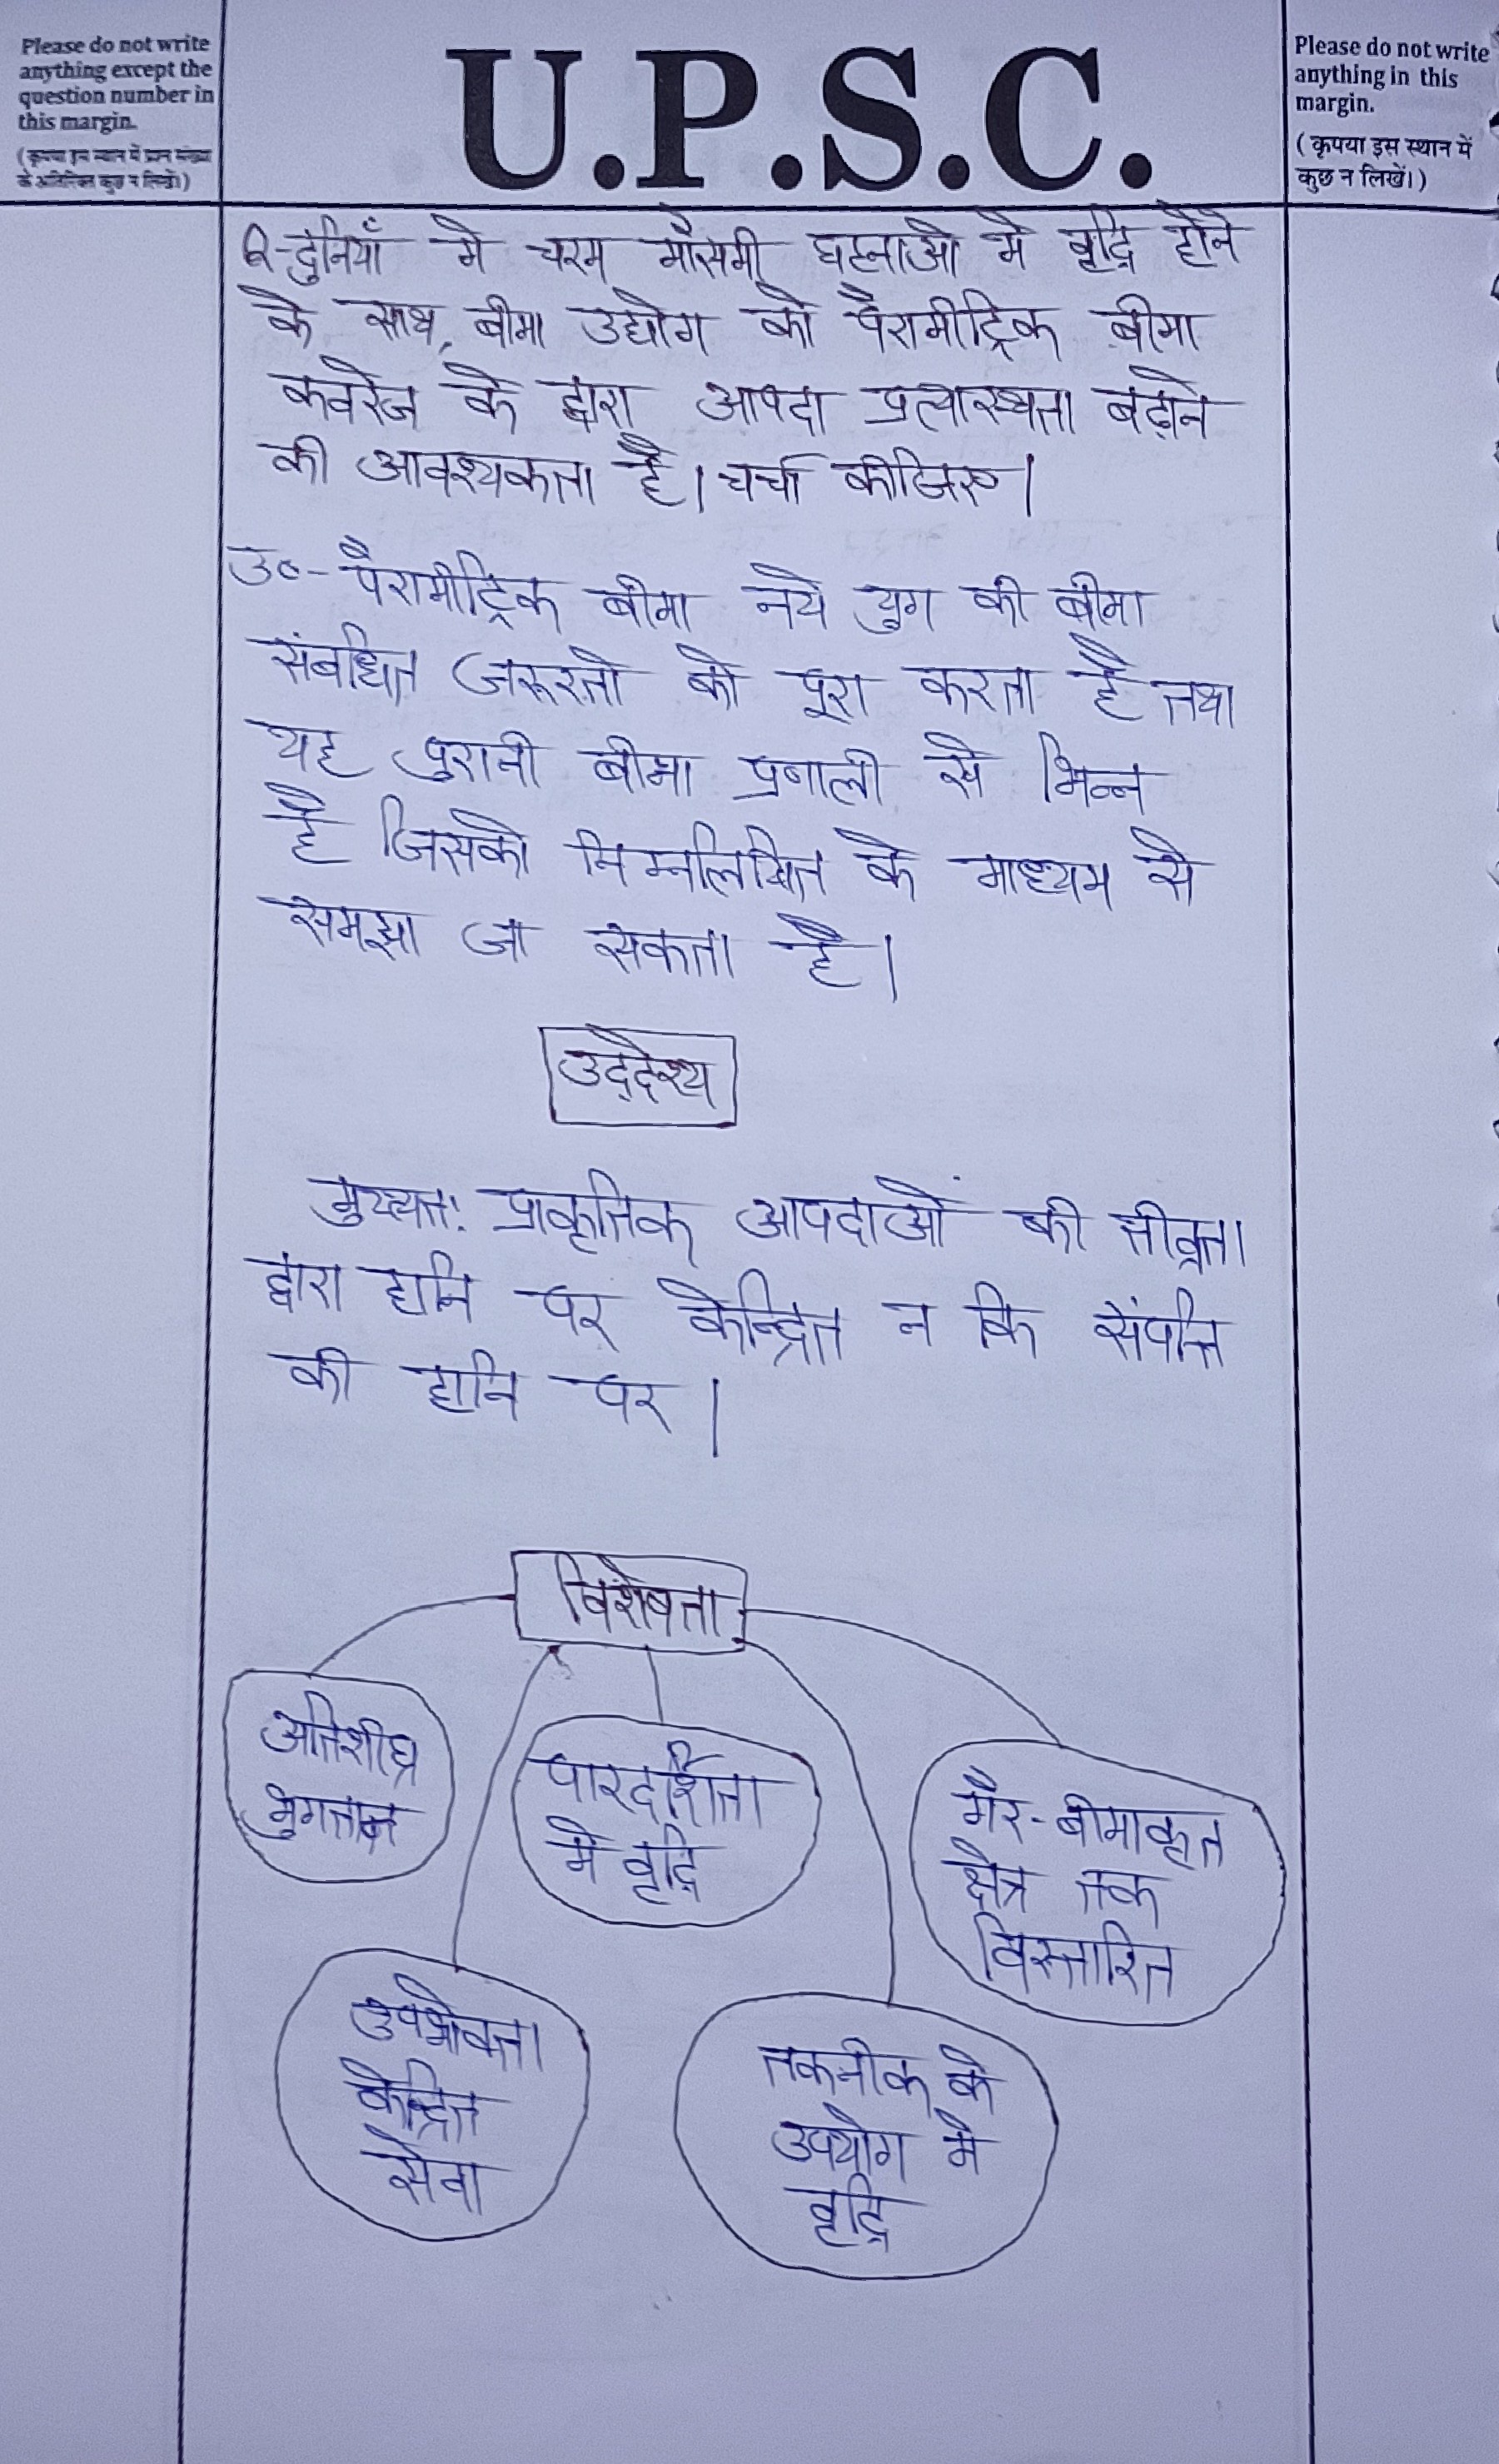 Please do not write
anything except the
question number in
this margin.
(कृपया इस स्थान में प्रश्न संख्या
के अतिरिक्त कुछ न लिखें।)
U.P.S.C.
Please do not write
anything in this
margin.
(कृपया इस स्थान में
कुछ न लिखें।)
Q-दुनियाँ मे चरम मौसमी घटनाओ मे वृद्धि होने
के साथ, बीमा उद्योग को पैरामीट्रिक बीमा
कवरेज के द्वारा आपदा प्रत्यास्थता बढ़ाने
की आवश्यकता है। चर्चा कीजिए।
उ०- पैरामीट्रिक बीमा नये युग की बीमा
संबधित जरूरतो को पूरा करता है तथा
यह पुरानी बीमा प्रणाली से भिन्न
है जिसको निम्नलिखित के माध्यम से
समझा जा सकता है।
उद्देश्य
मुख्यतः प्राकृतिक आपदाओं की तीव्रता
द्वारा हानि पर केन्द्रित न कि संपत्ति
की हानि पर।
विशेषता
अतिशीघ्र
भुगतान
पारदर्शिता
मे वृद्धि
गैर-बीमाकृत
क्षेत्र तक
विस्तारित
उपभोक्ता
केन्द्रित
सेवा
तकनीक के
उपयोग मे
वृद्धि